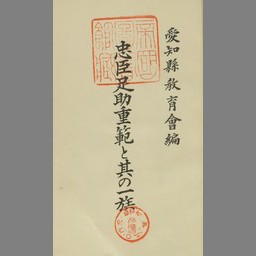 愛知縣教育會編
忠臣足助重範と其の一族